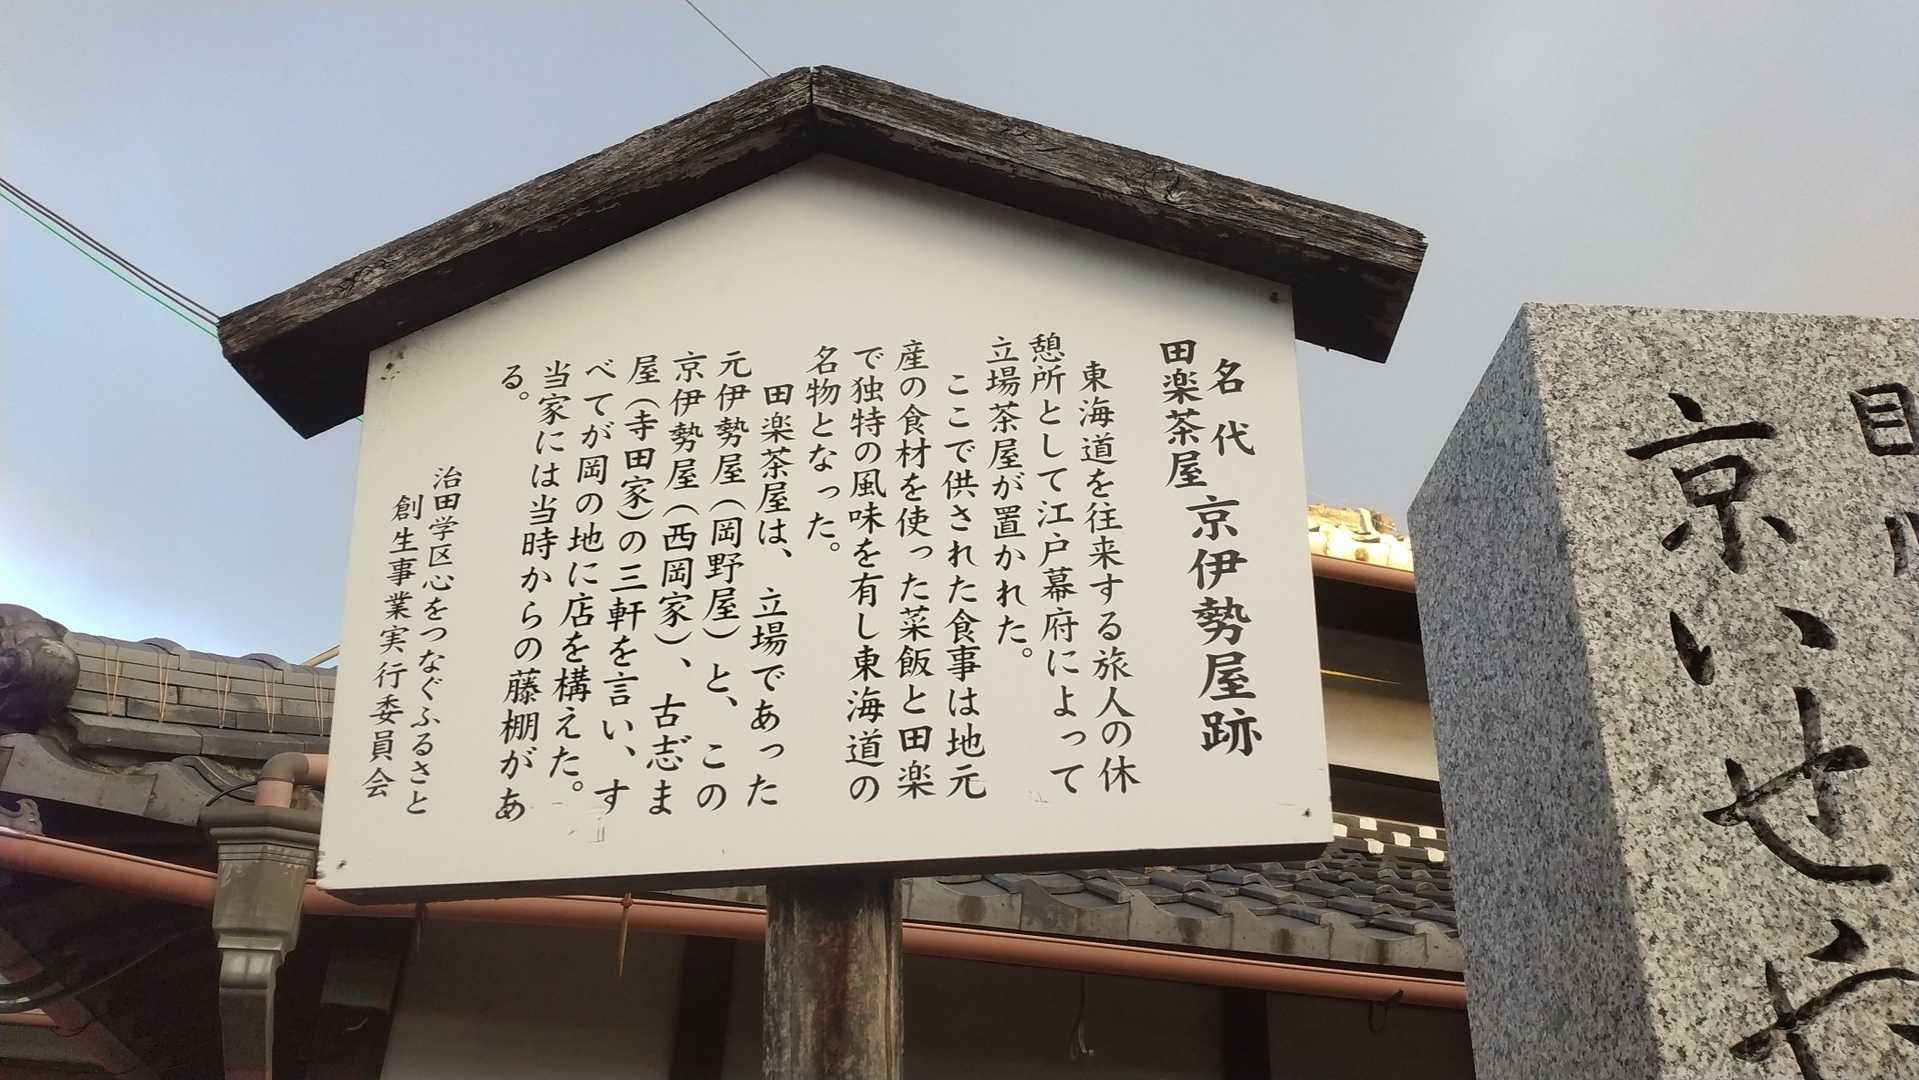 名代
田楽茶屋 京伊勢屋跡
東海道を往来する旅人の休
憩所として江戸幕府によって
立場茶屋が置かれた。
ここで供された食事は地元
産の食材を使った菜飯と田楽
で独特の風味を有し東海道の
名物となった。
田楽茶屋は、立場であった
元伊勢屋(岡野屋)と、この
京伊勢屋(西岡家)、古志゛ま
屋(寺田家)の三軒を言い、す
べてが岡の地に店を構えた。
当家には当時からの藤棚があ
る。
治田学区心をつなぐふるさと
創生事業実行委員会
目川
京いせや